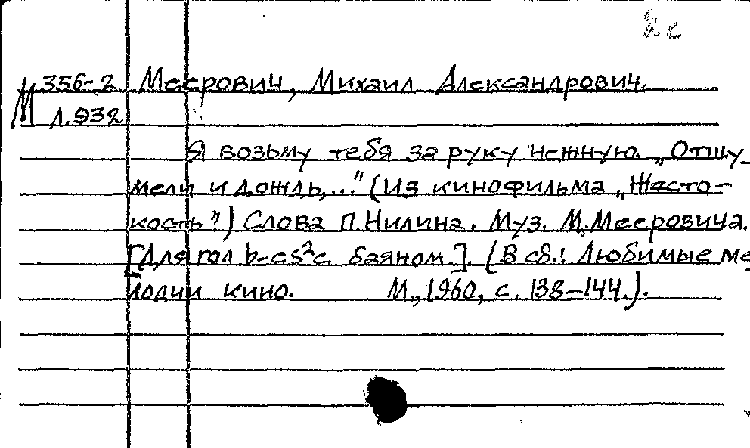 М 356-2 Меерович, Михаил Александрович.
Л.932
Я возьму тебя за руку нежную. „Отшу-
мели и дождь,..." (Из кинофильма „Жесто-
кость") Слова П.Нилина. Муз. М.Мееровича.
[Для гол b-es²с. баяном.]. (В сб.: Любимые ме
лодии кино. М., 1960, с. 138-144.).